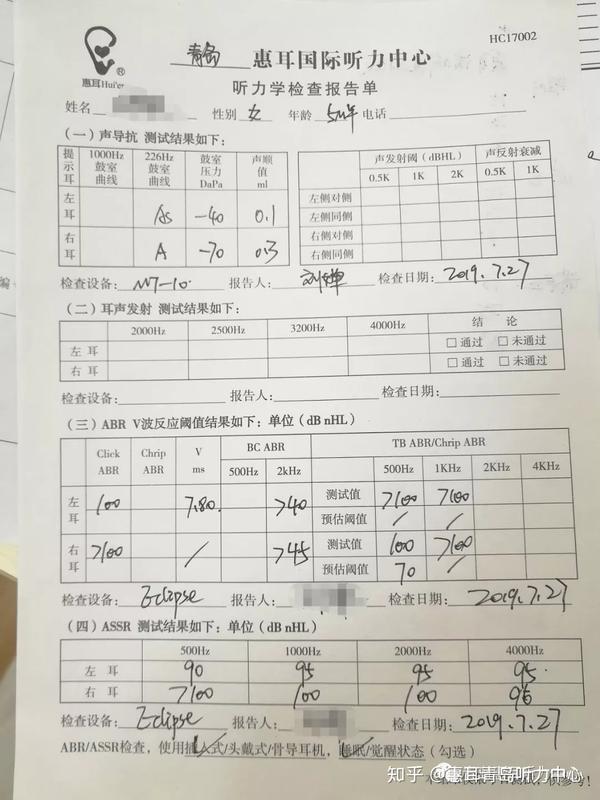 HC17002
惠耳Hui'er ® 青岛 惠耳国际听力中心
听力学检查报告单
姓名 性别 女 年龄 5岁 电话
（一）声导抗 测试结果如下：
提示耳 1000Hz鼓室曲线 226Hz鼓室曲线 鼓室压力DaPa 声顺值ml
左耳 As -40 0.1
右耳 A -70 0.3
声发射阈（dBHL） 声反射衰减
0.5K 1K 2K 0.5K 1K
左侧对侧
左侧同侧
右侧对侧
右侧同侧
检查设备： 报告人： 检查日期：2019.7.27
（二）耳声发射 测试结果如下：
2000Hz 2500Hz 3200Hz 4000Hz 结 论
左 耳 □ 通过 □ 未通过
右 耳 □ 通过 □ 未通过
检查设备： 报告人： 检查日期：
（三）ABR V波反应阈值结果如下：单位（dB nHL）
Click ABR Chrip ABR V ms BC ABR TB ABR/Chrip ABR
500Hz 2kHz 500Hz 1KHz 2KHz 4KHz
左耳 100 7.80 >40 测试值 >100 >100
预估阈值 / /
右耳 >100 / >45 测试值 100 >100
预估阈值 70 /
检查设备：Eclipse 报告人： 检查日期：2019.7.27
（四）ASSR 测试结果如下：单位（dB nHL）
500Hz 1000Hz 2000Hz 4000Hz
左 耳 90 95 95 95
右 耳 >100 100 100 95
检查设备：Eclipse 报告人： 检查日期：2019.7.27
ABR/ASSR检查，使用插入式/头戴式/骨导耳机，睡眠/觉醒状态（勾选）
知乎 @惠耳青岛听力中心